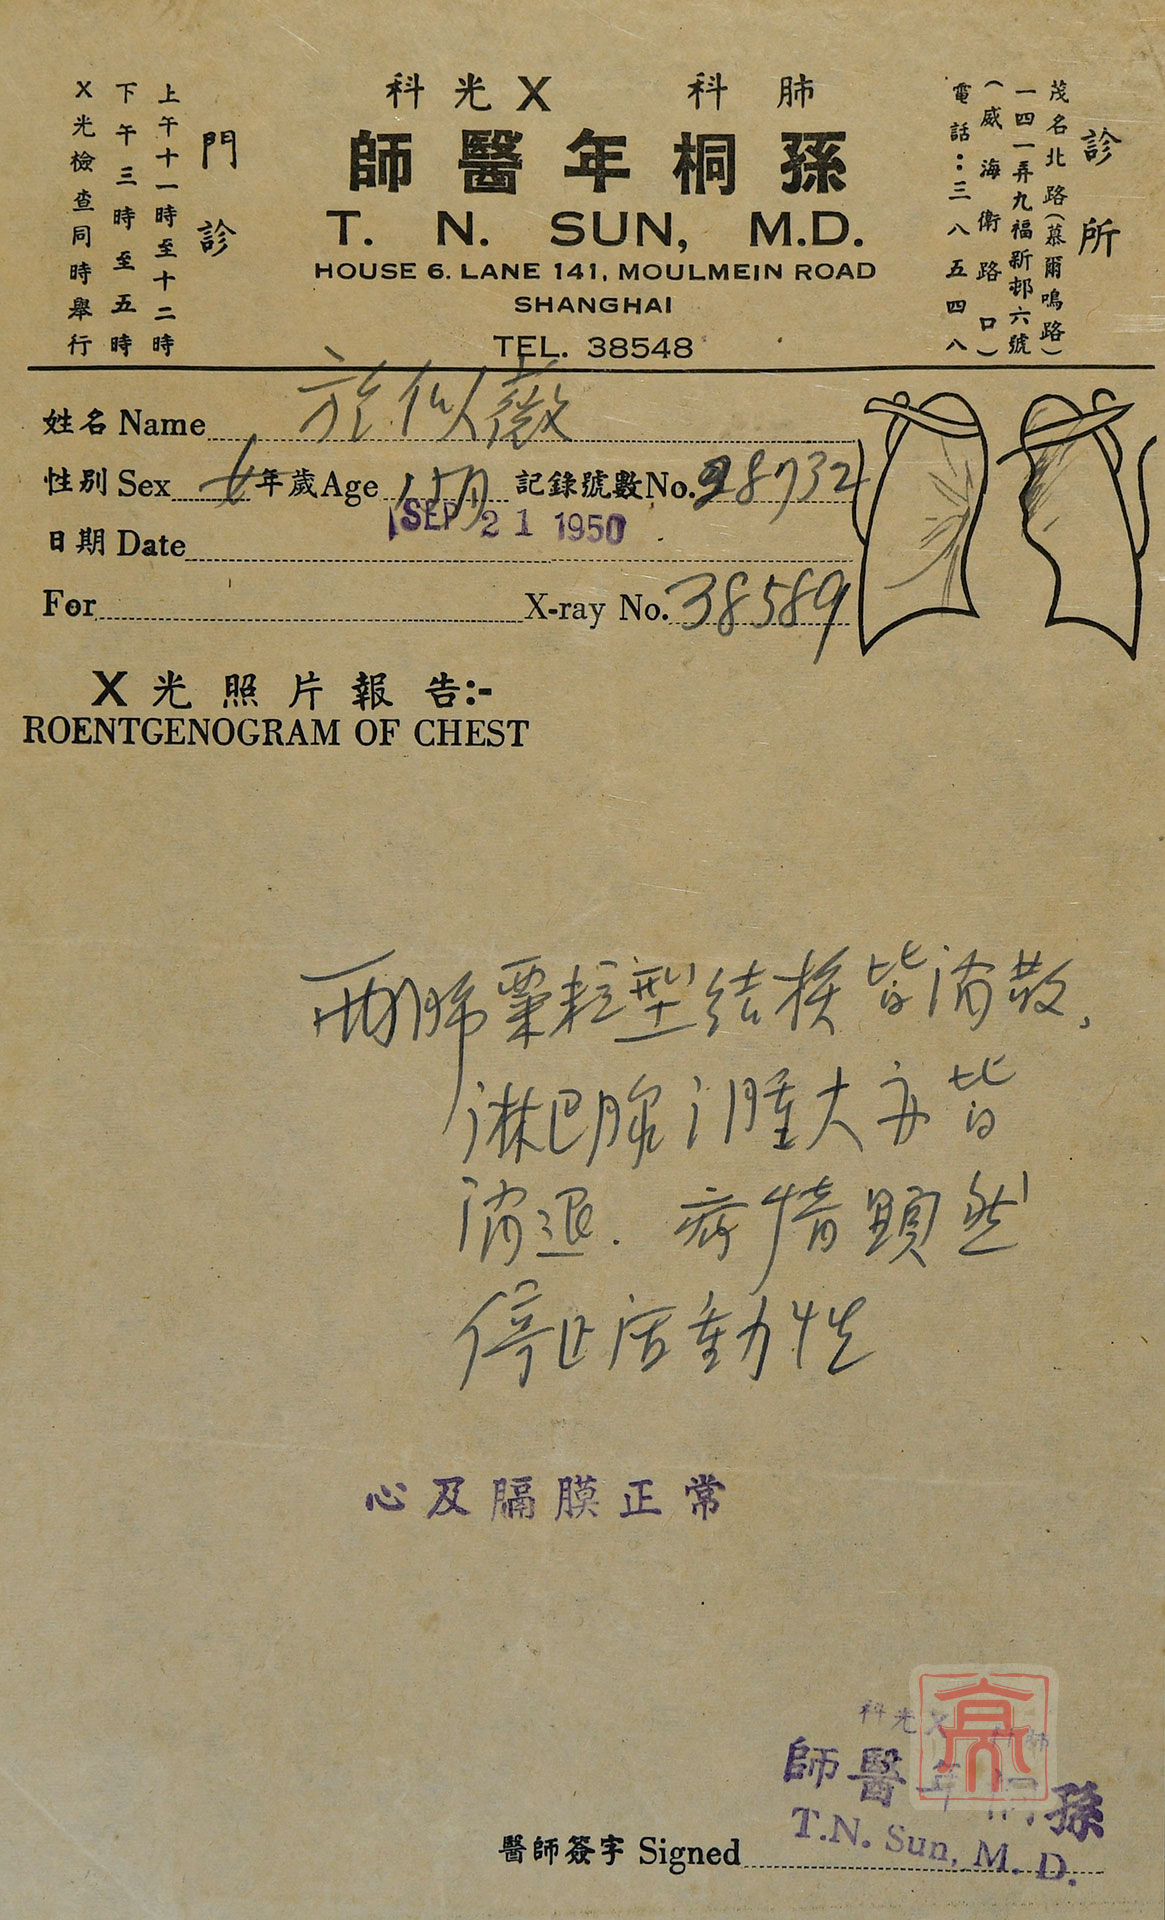 肺科 X光科
孫桐年醫師
T. N. SUN, M.D.
HOUSE 6. LANE 141, MOULMEIN ROAD
SHANGHAI
TEL. 38548
診所
茂名北路(慕爾鳴路)
一四一弄九福新邨六號
(威海衛路口)
電話:三八五四八
門診
上午十一時至十二時
下午三時至五時
X光檢查同時舉行
姓名 Name 於似薇
性別 Sex 女 年歲 Age 記錄號數 No. 28732
日期 Date SEP 21 1950
For X-ray No. 38589
X光照片報告:-
ROENTGENOGRAM OF CHEST
兩肺粟粒型結核皆消散,
淋巴腺腫大亦皆
消退. 病情顯然
停止活動性
心及膈膜正常
肺科 X光科
孫桐年醫師
T.N. Sun, M. D.
醫師簽字 Signed